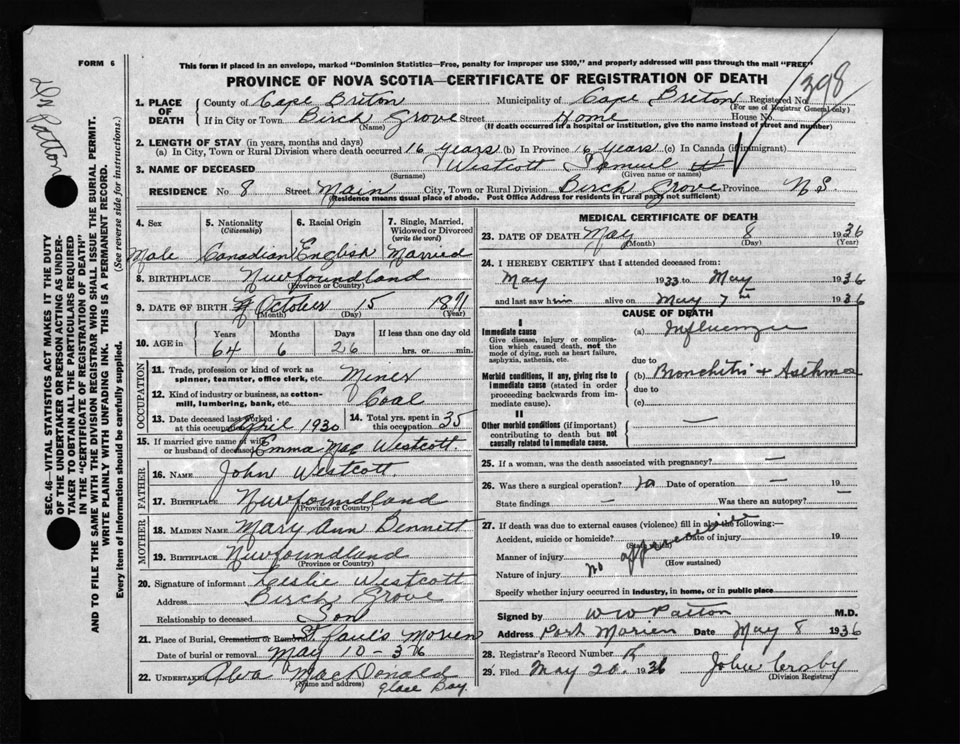 FORM 6
This form if placed in an envelope, marked "Dominion Statistics—Free, penalty for improper use $300," and properly addressed will pass through the mail "FREE"
PROVINCE OF NOVA SCOTIA—CERTIFICATE OF REGISTRATION OF DEATH
1398
1. PLACE OF DEATH County of Cape Briton Municipality of Cape Breton Registered No.
(For use of Registrar General only)
If in City or Town Birch Grove Street Home House No.
(Name) (If death occurred in a hospital or institution, give the name instead of street and number)
2. LENGTH OF STAY (in years, months and days)
(a) In City, Town or Rural Division where death occurred 16 years (b) In Province 16 years (c) In Canada (if immigrant)
3. NAME OF DECEASED Westcott
(Surname) (Given name or names)
RESIDENCE No 8 Street Main City, Town or Rural Division Birch Grove Province N.S.
(Residence means usual place of abode. Post Office Address for residents in rural parts not sufficient)
4. Sex 5. Nationality 6. Racial Origin 7. Single, Married, Widowed or Divorced
(Citizenship) (write the word)
Male Canadian English Married
8. BIRTHPLACE Newfoundland
(Province or Country)
9. DATE OF BIRTH October 15 1871
(Month) (Day) (Year)
10. AGE in Years Months Days If less than one day old
64 6 26 hrs. or min.
OCCUPATION
11. Trade, profession or kind of work as spinner, teamster, office clerk, etc. Miner
12. Kind of industry or business, as cotton-mill, lumbering, bank, etc. Coal
13. Date deceased last worked at this occupation April 1930 14. Total yrs. spent in this occupation 35
15. If married give name of wife or husband of deceased Emma Mae Westcott.
FATHER
16. NAME John Westcott.
17. BIRTHPLACE Newfoundland
(Province or Country)
MOTHER
18. MAIDEN NAME Mary Ann Bennett
19. BIRTHPLACE Newfoundland
(Province or Country)
20. Signature of informant Leslie Westcott
Address Birch Grove
Relationship to deceased Son
21. Place of Burial, Cremation or Removal St Paul's Morien
Date of burial or removal May 10-36
22. UNDERTAKER Alva MacDonald
(Name and address)
Glace Bay.
MEDICAL CERTIFICATE OF DEATH
23. DATE OF DEATH May 8 1936
(Month) (Day) (Year)
24. I HEREBY CERTIFY that I attended deceased from:
May 1933 to May 1936
and last saw him alive on May 7th 1936
CAUSE OF DEATH
I
Immediate cause (a) Influenza
Give disease, injury or complication which caused death, not the mode of dying, such as heart failure, asphyxia, asthenia, etc.
due to
Morbid conditions, if any, giving rise to immediate cause (stated in order proceeding backwards from immediate cause). (b) Bronchitis + Asthma
due to
(c)
II
Other morbid conditions (if important) contributing to death but not causally related to immediate cause.
25. If a woman, was the death associated with pregnancy? —
26. Was there a surgical operation? no Date of operation — 19 —
State findings — Was there an autopsy? —
27. If death was due to external causes (violence) fill in also the following:—
Accident, suicide or homicide? Date of injury 19
Manner of injury
(How sustained)
Nature of injury no
Specify whether injury occurred in industry, in home, or in public place
Signed by W W Patton M.D.
Address Port Morien Date May 8 1936
28. Registrar's Record Number
29. Filed May 20. 1936 John Crosby
(Division Registrar)
SEC. 46—VITAL STATISTICS ACT MAKES IT THE DUTY
OF THE UNDERTAKER OR PERSON ACTING AS UNDER-
TAKER TO OBTAIN ALL THE PARTICULARS REQUIRED
IN THE "CERTIFICATE OF REGISTRATION OF DEATH"
AND TO FILE THE SAME WITH THE DIVISION REGISTRAR WHO SHALL ISSUE THE BURIAL PERMIT.
WRITE PLAINLY WITH UNFADING INK. THIS IS A PERMANENT RECORD.
Every item of information should be carefully supplied. (See reverse side for instructions.)